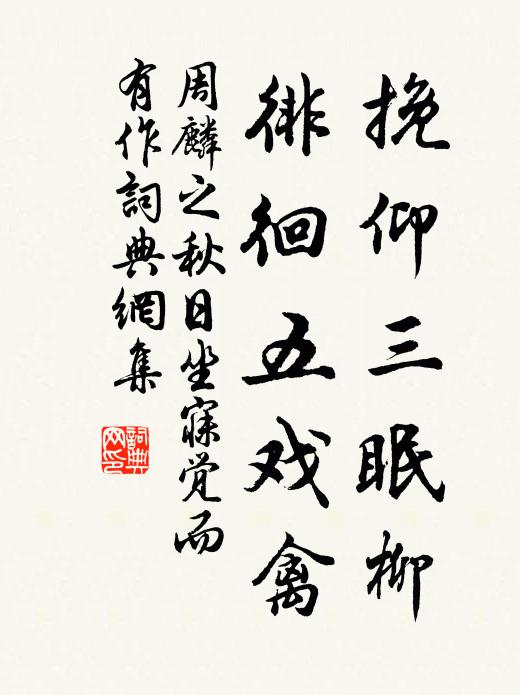 挽仰三眠柳
徘徊五戏禽
周麟之秋日坐寐觉而
有作詞典網集
詞典
网印